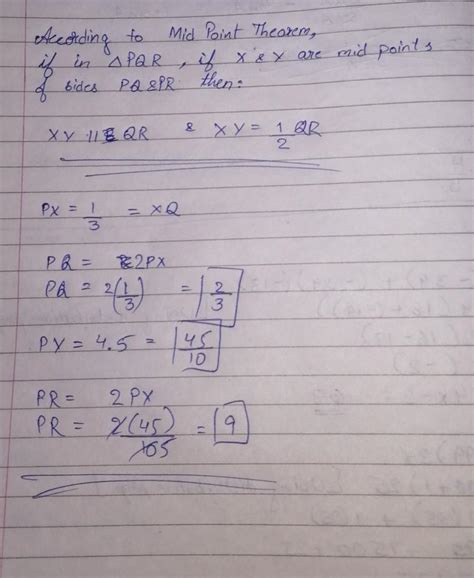 According to Mid Point Theorem,
if in △PQR, if X & Y are mid points
of sides PQ & PR then:
XY || QR & XY = 1/2 QR
PX = 1/3 = XQ
PQ = 2PX
PQ = 2(1/3) = 2/3
PY = 4.5 = 45/10
PR = 2PX
PR = 2(45)/105 = 9